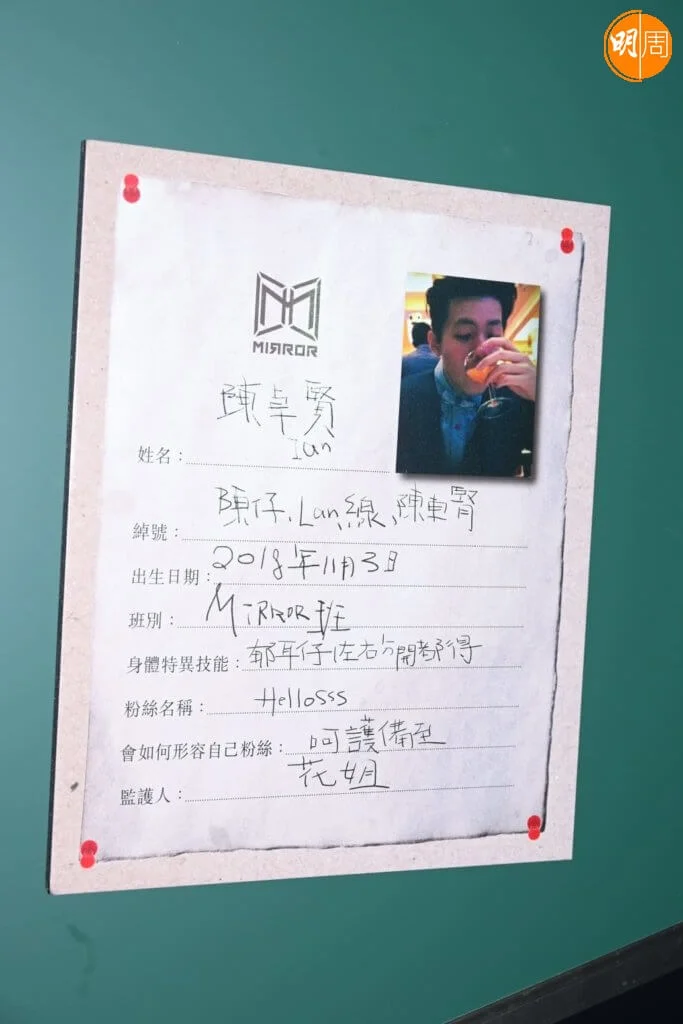 明周
MIRROR
陳卓賢
Ian
姓名：
綽號：陳仔、Lan、線、陳車腎
出生日期：2018年11月3日
班別：MIRROR班
身體特異技能：郁耳仔左右分開都得
粉絲名稱：Hellosss
會如何形容自己粉絲：呵護備至
監護人：花姐